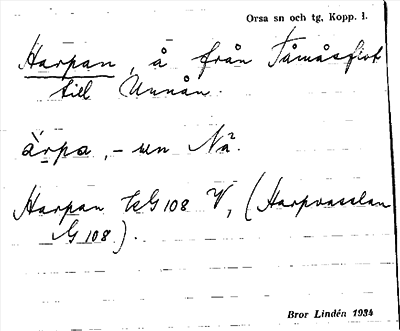 Orsa sn och tg, Kopp. l.
Harpan, å från Tåmåsfiot
till Unnån.
àrpa, -un Nä.
Harpan kG 108 V, (Harpvasslan
G 108).
Bror Lindén 1934